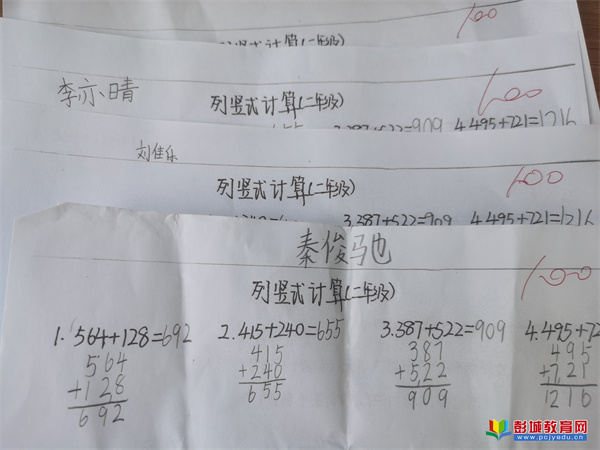 100
列竖式计算(二年级)
李亦晴
100
列竖式计算(二年级)
655 3.387+522=909 4.495+721=1216
刘佳乐
100
列竖式计算(二年级)
3.387+522=909 4.495+721=1216
秦俊驰
100
列竖式计算(二年级)
1. 564+128=692 2.415+240=655 3.387+522=909 4.495+72
564 415 387 495
+128 +240 +522 +721
692 655 909 1216
彭城教育网
www.pcjyedu.cn